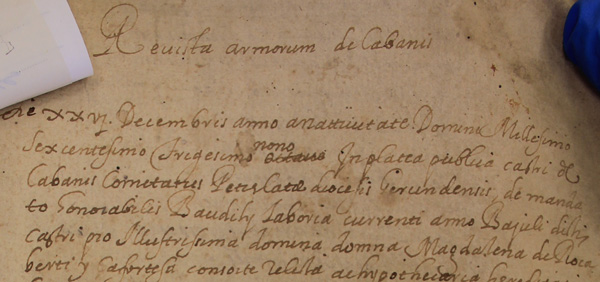 Revista armorum de Cabanis
Die XXVJ. Decembris anno anattiuitate Domini Millesimo
sexcentesimo Trigesimo nono octauo In platea publica castri de
Cabanis Comitatus Petrslata diocesis Gerundensis, de manda
to honorabilis Baudilÿ Laboria currenti anno Bajuli dicti
castri pro Illustrissima domina domna Magdalena de Roca
berti y Safortesa consorte relicta ac hypothecaria